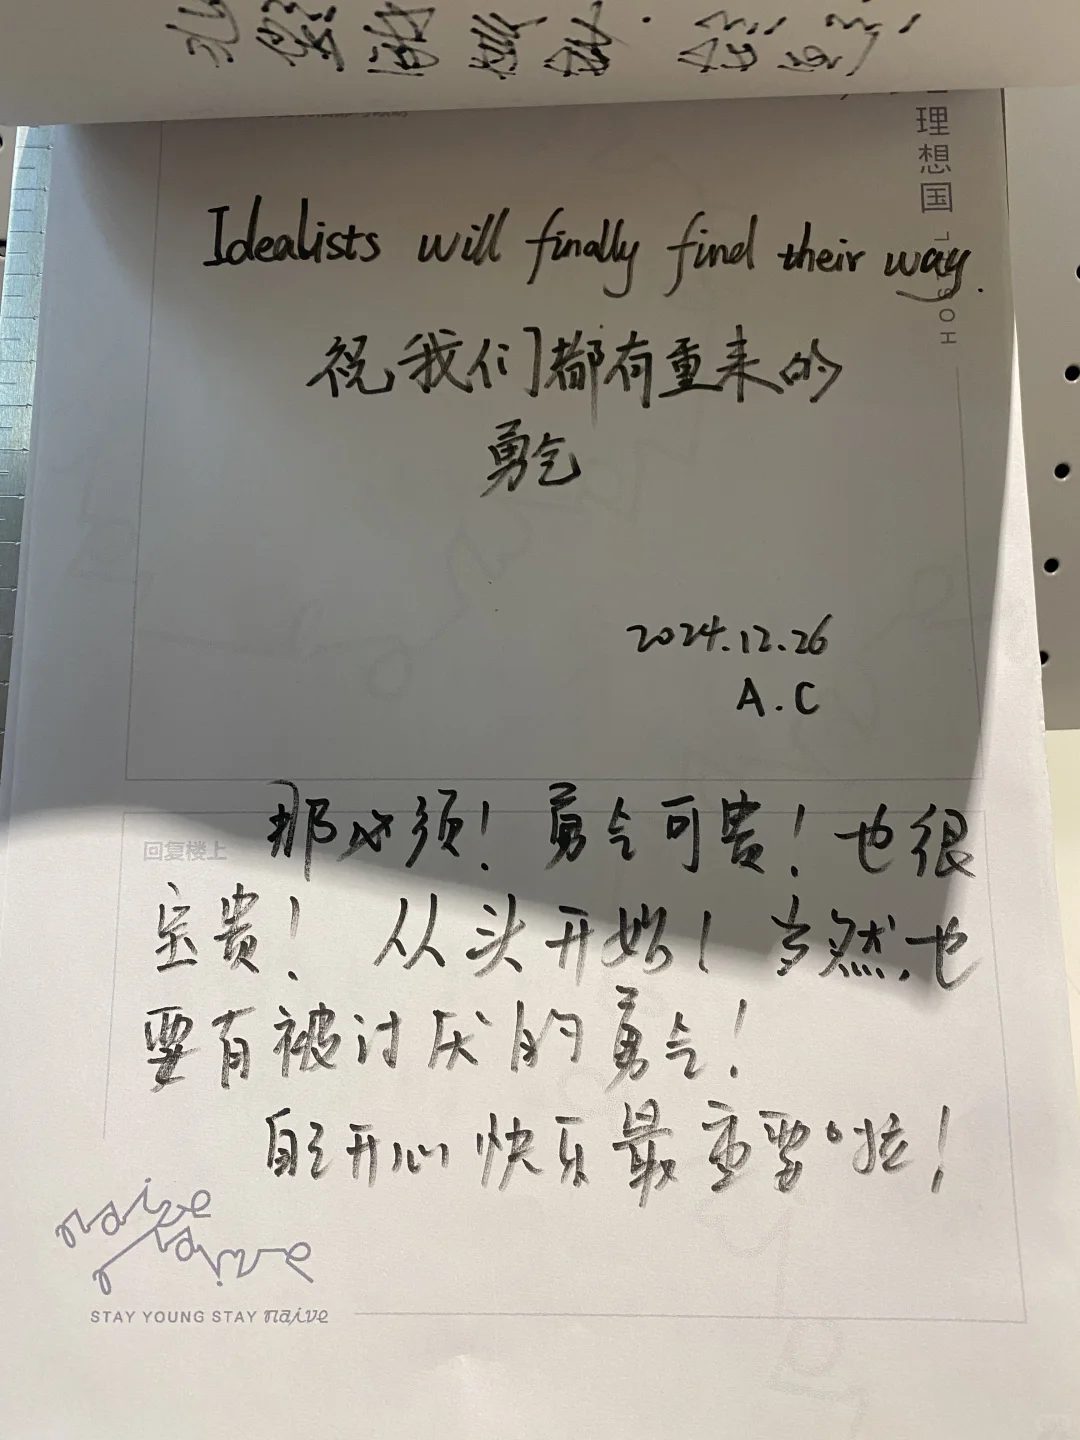 理想国
Idealists will finally find their way.
祝我们都有重来的
勇气
2024.12.26
A.C
回复楼上
那必须！勇气可贵！也很
宝贵！从头开始！当然，也
要有被讨厌的勇气！
自己开心快乐最重要啦！
naive
naive
STAY YOUNG STAY naive